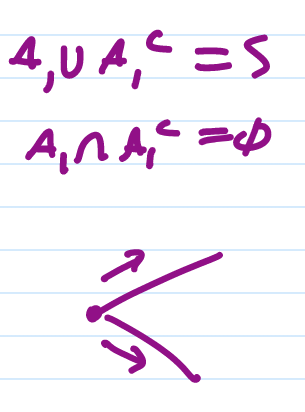 A₁ ∪ A₁ᶜ = S
A₁ ∩ A₁ᶜ = ϕ